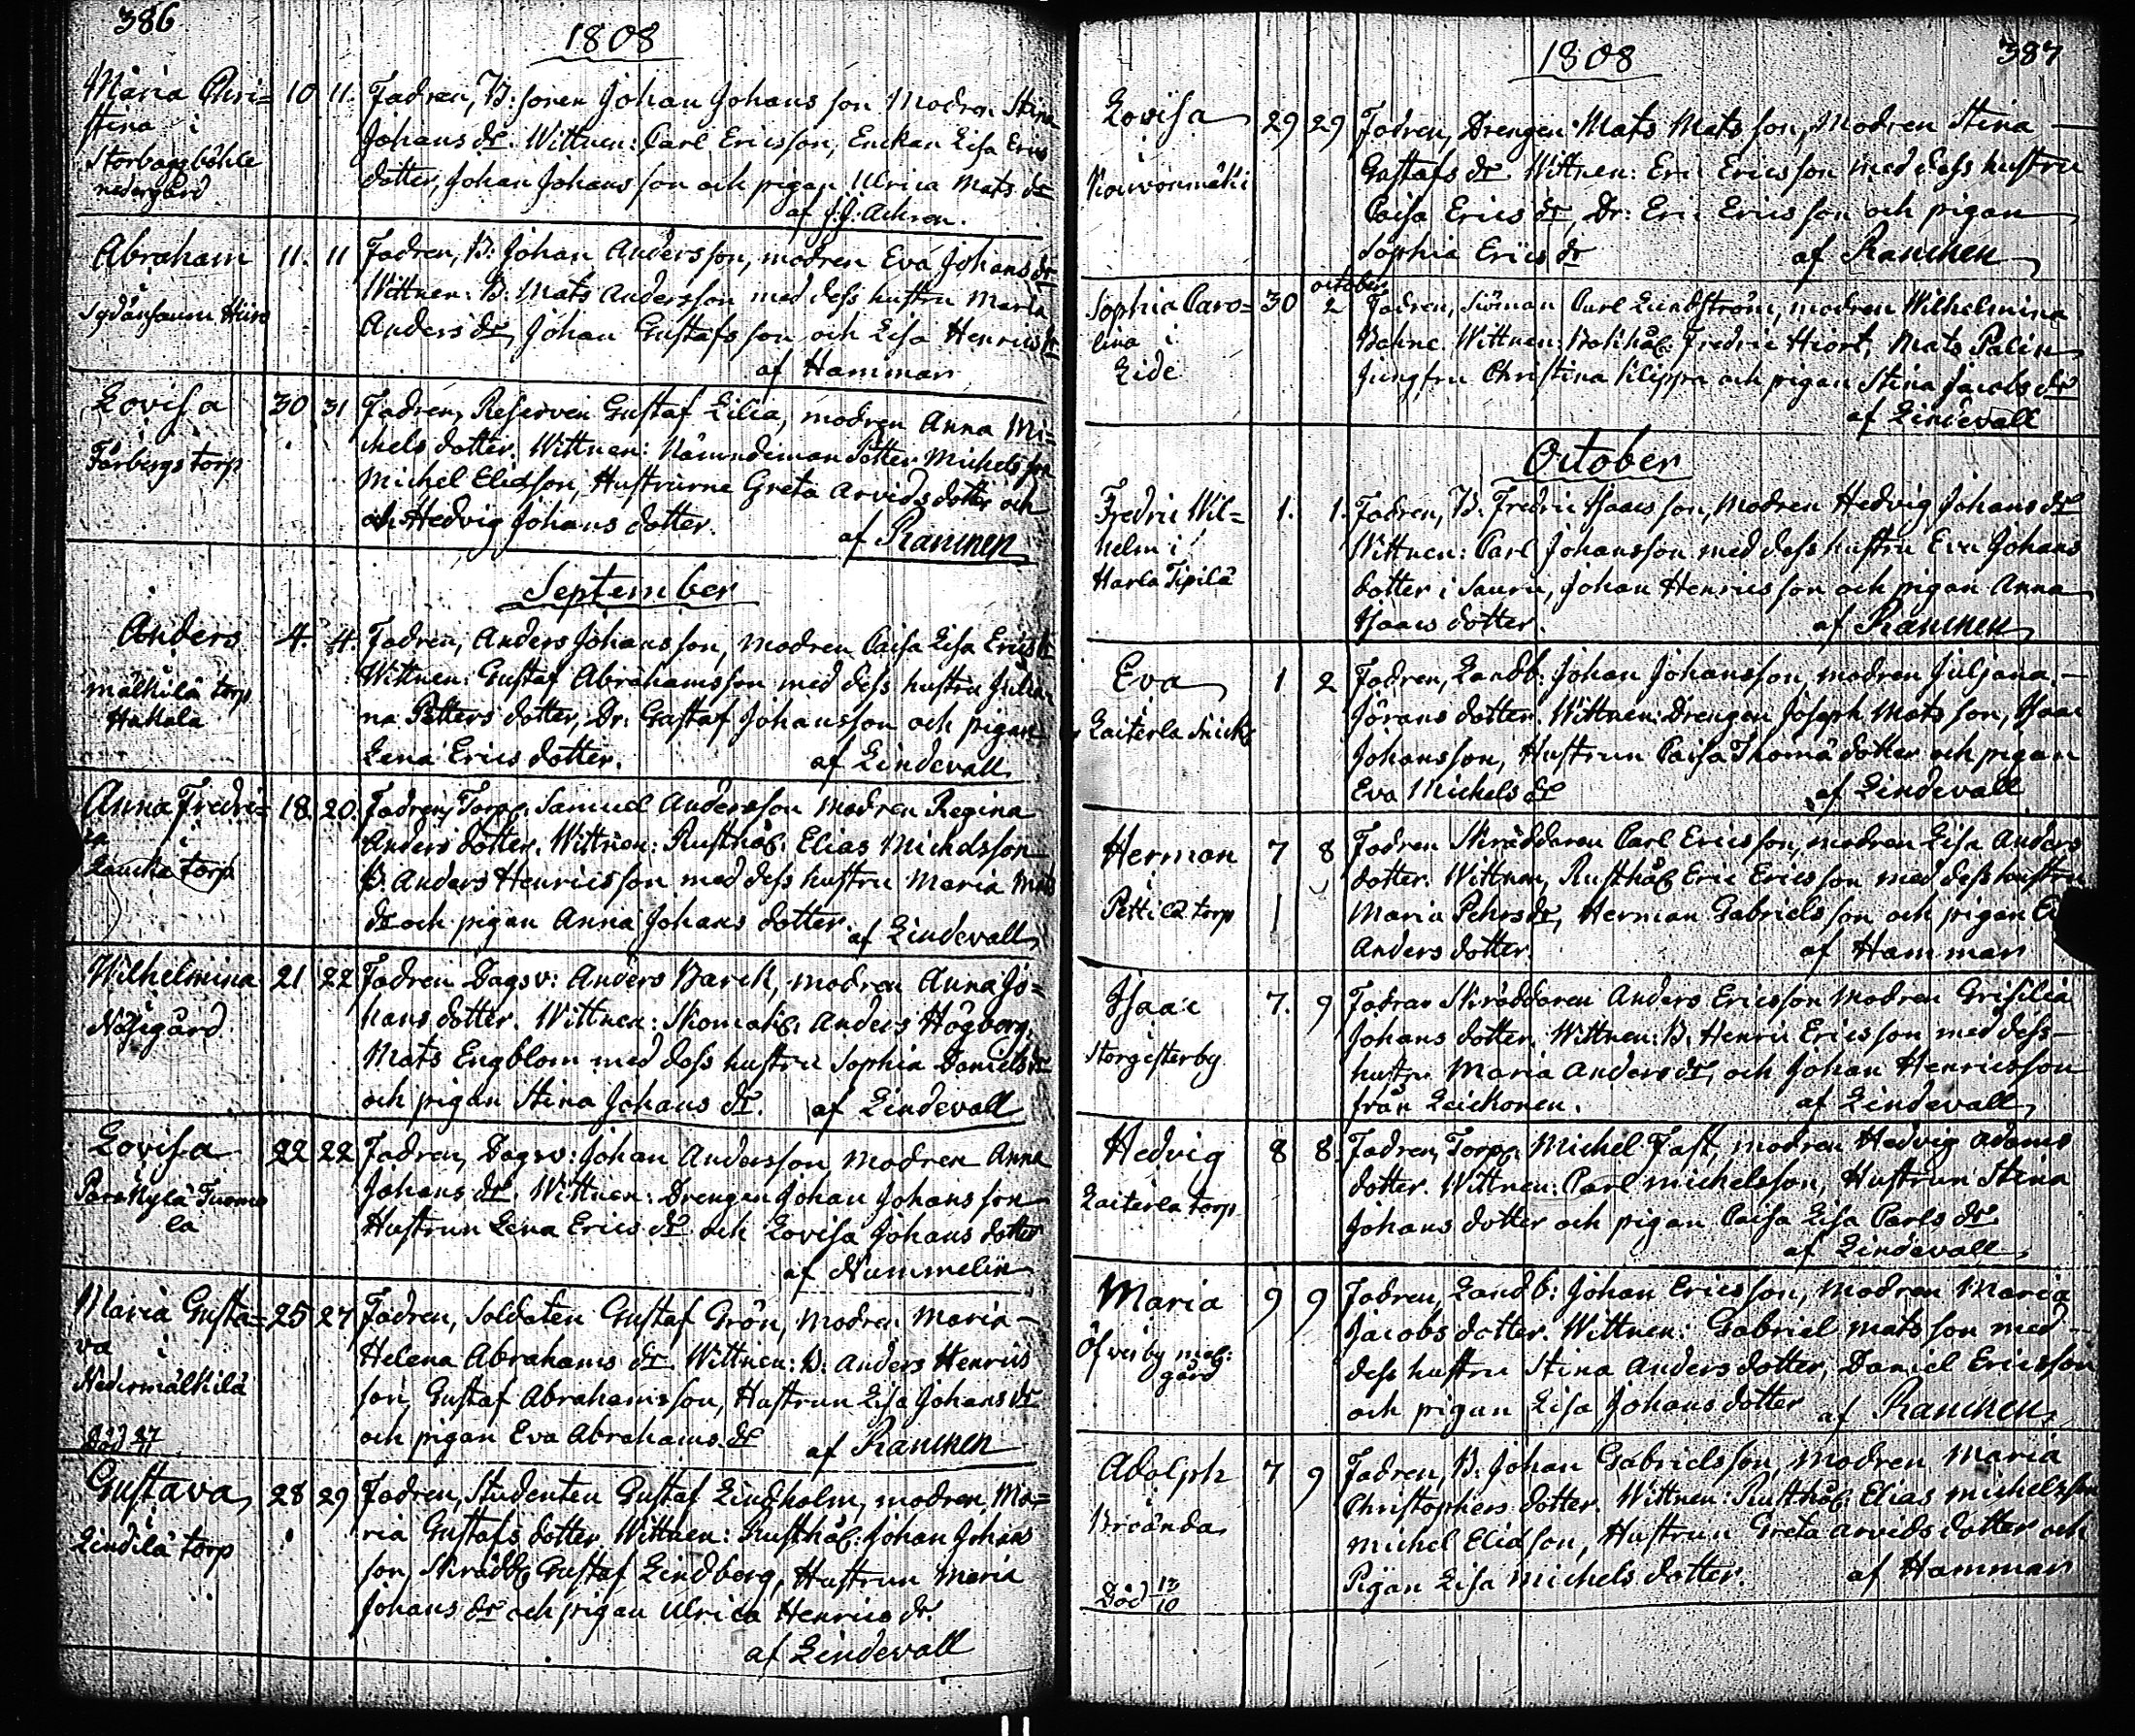 386
1808
Maria Chri=
stina i
Storbaggböhle
nedergård
10 11. Fadren, B: sonen Johan Johans son Modren Stina
Johans dr. Wittnen: Carl Ericsson, Enckan Lisa Erics
dotter, Johan Johans son och pigan Ulrica Mats dr
af J:G: Achren.
Abraham
i
11. 11 Fadren, B: Johan Andersson, modren Eva Johans dr
Wittnen: B: Mats Andersson med dess hustru Maria
Anders dr, Johan Gustafs son och Lisa Henrics dr
af Hammar
Lovisa
i
Färbergs torp
30 31 Fadren, Reserven Gustaf Lilia, modren Anna Mi=
chels dotter. Wittnen: Nämndeman Petter Michels son
Michel Eliasson, Hustrurne Greta Arvids dotter och
och Hedvig Johans dotter.
af Rancken
September
Anders
i
Mälkilä torp
Hakala
4. 4. Fadren, Anders Johansson, Modren Caisa Lisa Erics dr
Wittnen: Gustaf Abrahamsson med dess hustru Julia
na Petters dotter, Dr: Gustaf Johansson och pigan
Lena Erics dotter.
af Lindevall
Anna Fredri=
ca i
torp
18. 20. Fadren, Torp. Samuel Andersson Modren Regina
Anders dotter. Wittnen: Rusthåll. Elias Michelsson
B. Anders Henricsson med dess hustru Maria Mats
dr och pigan Anna Johans dotter. af Lindevall
Wilhelmina
Näsegård
21 22 Fadren Dagsv: Anders Barck, modren Anna Jo=
hans dotter. Wittnen: Skomak. Anders Högborg,
Mats Engblom med dess hustru Sophia Daniels dr
och pigan Stina Johans dr. af Lindevall
Lovisa
i
Parakylä Tuomo
la
22 22 Fadren, Dagsv: Johan Andersson Modren Anna
Johans dr. Wittnen: Drengen Johan Johans son
Hustrun Lena Erics dr och Lovisa Johans dotter
af Nummelin
Maria Gusta=
va i
Nedermälkilä
Död 27/11
25 27 Fadren, Soldaten Gustaf Grön, Modren Maria
Helena Abrahams dr. Wittnen: B: Anders Henrics
son, Gustaf Abrahamsson, Hustrun Lisa Johans dr
och pigan Eva Abrahams dr af Rancken
Gustava
i
Lindilä torp
28 29 Fadren, Studenten Gustaf Lindholm, modren Ma=
ria Gustafs dotter. Wittnen: Rusthåll: Johan Johans
son, Skrädd. Gustaf Lindberg, Hustrun Maria
Johans dr och pigan Ulrica Henrics dr.
af Lindevall
1808
387
Lovisa
i
Kouvonmäki
29 29 Fadren, Drengen Mats Mats son, Modren Stina
Gustafs dr. Wittnen: Eric Ericsson med dess hustru
Caisa Erics dr, Dr: Eric Erics son och pigan
Sophia Erics dr af Rancken
Sophia Caro=
lina i
Lide
october
30 2 Fadren, Siöman Carl Lundström, modren Wilhelmina
Bahne. Wittnen: Bokhåll: Fredric Hiort, Mats Palin
Jungfru Christina Klippa och pigan Stina Jacobs dr
af Lindevall
October
Fredric Wil=
helm i
Harla Tipilä
1. 1. Fadren, B: Fredric Isaacs son, Modren Hedvig Johans dr
Wittnen: Carl Johansson med dess hustru Eva Johans
dotter i Sauru, Johan Henrics son och pigan Anna
Isaacs dotter.
af Rancken
Eva
i
Laiterla
1 2 Fadren, Landb: Johan Johansson, modren Juljana
Jörans dotter. Wittnen: Drengen Joseph Mats son, Isaac
Johansson, Hustrun Caisa Thomä dotter och pigan
Eva Michels dr af Lindevall
Herman
i
Pettilä torp
7 8 Fadren Skräddaren Carl Ericsson, modren Lisa Anders
dotter. Wittnen, Rusthåll Eric Erics son med dess hustru
Maria Pehrs dr, Herman Gabriels son och pigan
Anders dotter.
af Hammar
Isaac
i
Storgesterby
7. 9 Fadren Skräddaren Anders Ericsson Modren Grisilia
Johans dotter. Wittnen: B. Henric Erics son med dess
hustru Maria Anders dr, och Johan Henricsson
från Leickonen. af Lindevall
Hedvig
i
Laiterla torp
8 8. Fadren, Torp. Michel Fast, modren Hedvig Adams
dotter. Wittnen: Carl Michelsson, Hustrun Stina
Johans dotter och pigan Caisa Lisa Carls dr.
af Lindevall
Maria
i
Öfverby mel:
gård
9 9 Fadren, Landb: Johan Erics son, Modren Maria
Jacobs dotter. Wittnen: Gabriel Mats son med
dess hustru Stina Anders dotter, Daniel Ericsson
och pigan Lisa Johans dotter af Rancken
Adolph
i
Broända
Död 13/10
7 9 Fadren, B: Johan Gabrielsson, Modren Maria
Christophers dotter. Wittnen: Rusthåll: Elias Michelsson
Michel Eliasson, Hustrun Greta Arvids dotter och
Pigan Lisa Michels dotter. af Hammar